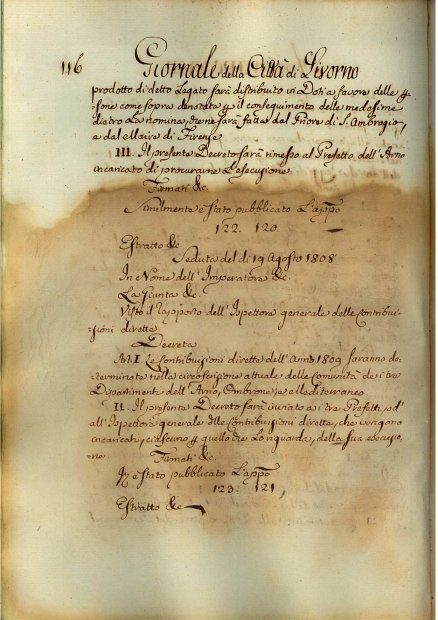 116 Giornale della Città di Livorno
prodotto di detto Legato sarà distribuito in Doti a favore delle p
sone come sopra denotate p il conseguimento delle medesime
dietro la nomina, che ne sarà fatta dal Priore di S. Ambrogio,
e dal Maire di Firenze
III. Il presente Decreto sarà rimesso al Prefetto dell'Arno
incaricato di procurarne l'esecuzione
Firmati &c.
Similmente è stato pubblicato l'appo
122. 120.
Estratto &c
Seduta del dì 19 Agosto 1808
In Nome dell'Imperatore &c.
La Giunta &c.
Visto il rapporto dell'Ispettore generale delle Contribu-
zioni dirette
Decreta
Art. I. Le Contribuzioni dirette dell'Anno 1809 saranno de-
terminate nella circoscrizione attuale delle Comunità dei tre
Dipartimenti dell'Arno, Ombrone, e Mediterraneo
II. Il presente Decreto sarà inviato ai tre Prefetti, ed
all'Ispettore generale delle Contribuzioni dirette, che vengono
incaricati, ciascuno p quello che lo riguarda, della sua esecuzio-
ne. Firmati &c.
Ed è stato pubblicato l'appo
123. 121
Estratto &c